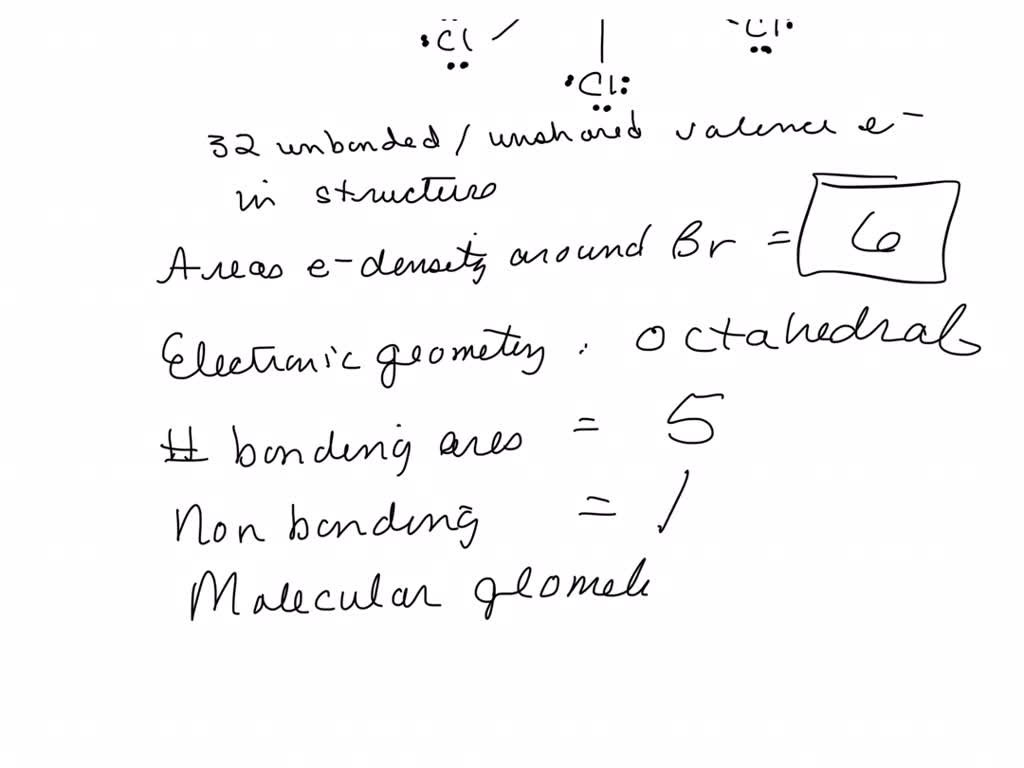 :Cl Cl:
:Cl:
32 unbonded / unshared valence e-
in structure
Areas e-density around Br = 6
Electronic geometry : octahedral
# bonding ares = 5
Non bonding = 1
Molecular geomet